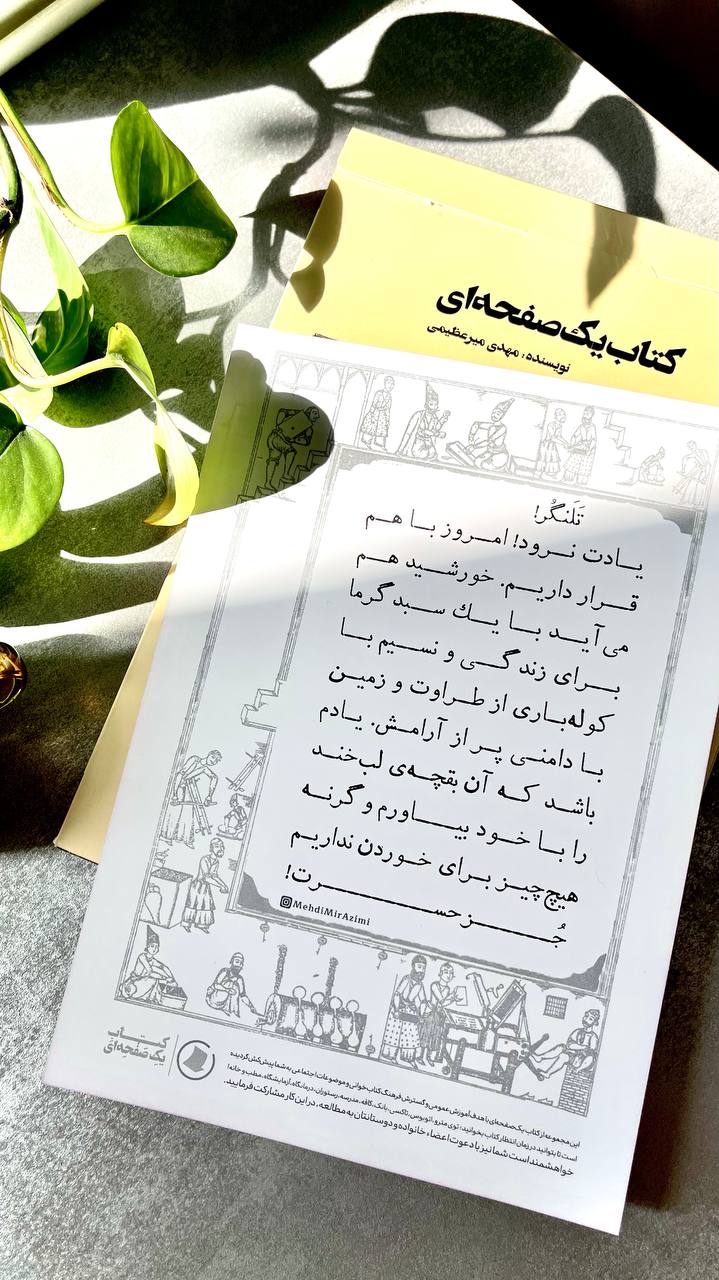 کتاب یک‌صفحه‌ای
نویسنده: مهدی میرعظیمی
تَلَنگُر!
یـادت نـرود! امـروز بـا هـم
قـرار داریـم. خورشـید هـم
می‌آیـد بـا یـك سـبد گرما
بـرای زندگـی و نسـیم بـا
کوله‌باری از طـراوت و زمیـن
بـا دامنـی پـر از آرامـش. یـادم
باشد کـه آن بقچـه‌ی لب‌خنـد
را بـا خـود بیـاورم و گرنـه
هیچ‌چیـز بـرای خـوردن نداریـم
جُـز حسـرت!
MehdiMirAzimi
کتاب
یک صَفحِه‌ای
این مجموعه از کتاب یک‌صفحه‌ای با هدف آموزش عمومی و گسترش فرهنگ کتاب‌خوانی و موضوعات اجتماعی به شما پیش‌کش گردیده
است تا بتوانید در زمان انتظار کتاب بخوانید؛ توی مترو، اتوبوس، تاکسی، بانک، کافه، مدرسه، رستوران، درمانگاه، آزمایشگاه، مطب و خانه!
خواهشمند است شما نیز با دعوت اعضاء خانواده و دوستانتان به مطالعه، در این کار مشارکت فرمایید.